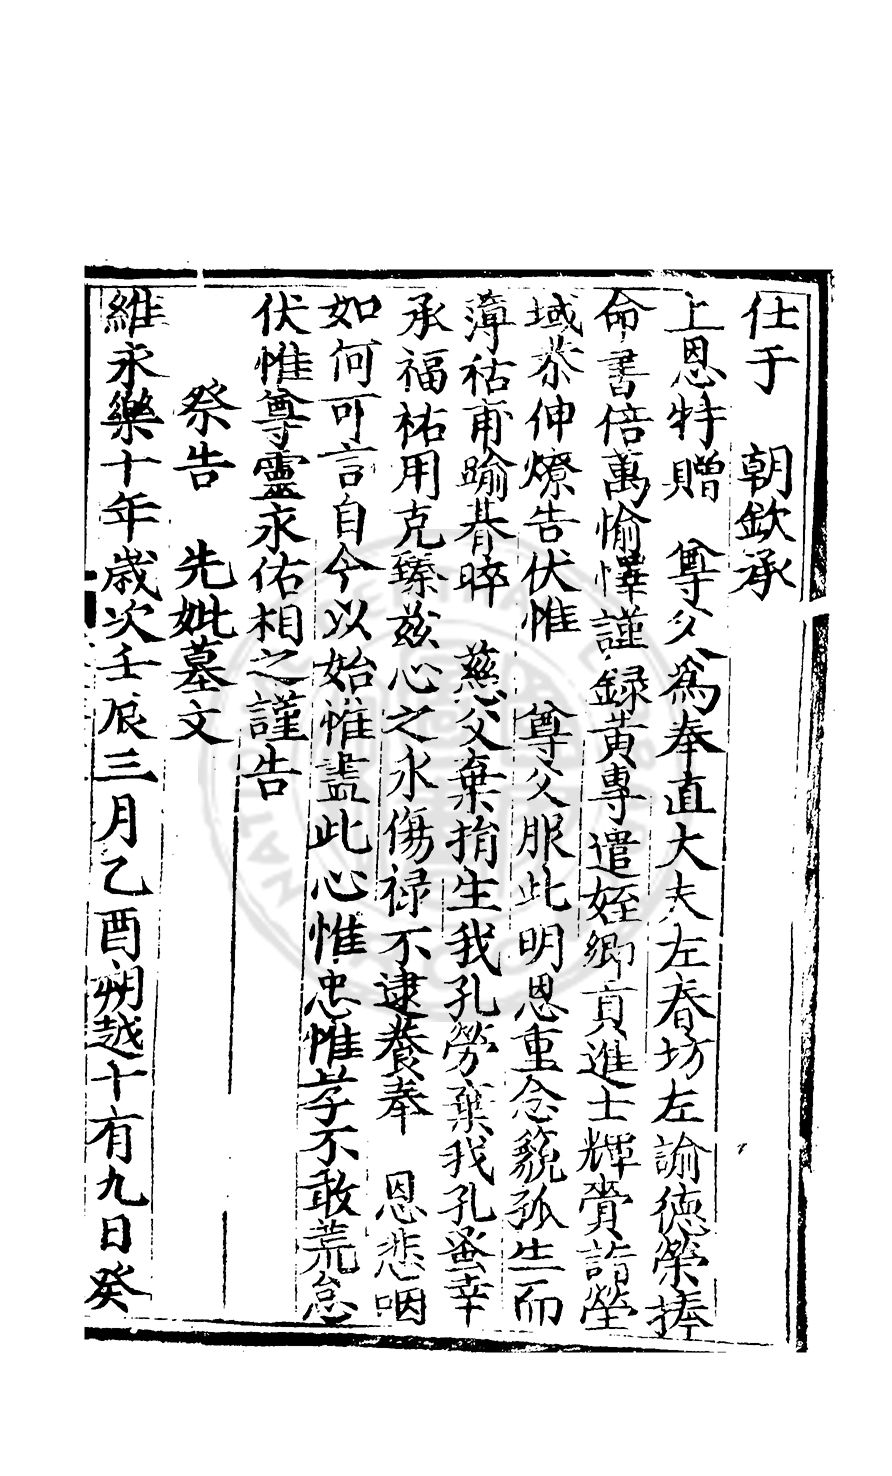 仕于　朝欽承
上恩特贈　尊父爲奉直大夫左春坊左諭德榮捧
命書倍萬愉懌謹録黃專遣姪鄉貢進士輝齎詣塋
域恭伸燎告伏惟　尊父服此明恩重念藐孤生而
薄祜甫踰朞晬　慈父棄捐生我孔勞棄我孔蚤幸
承福祐用克臻兹心之永傷禄不逮養奉　恩悲咽
如何可言自今以始惟盡此心惟忠惟孝不敢荒怠
伏惟尊靈永佑相之謹告
祭告　先妣墓文
維永樂十年歲次壬辰三月乙酉朔越十有九日癸